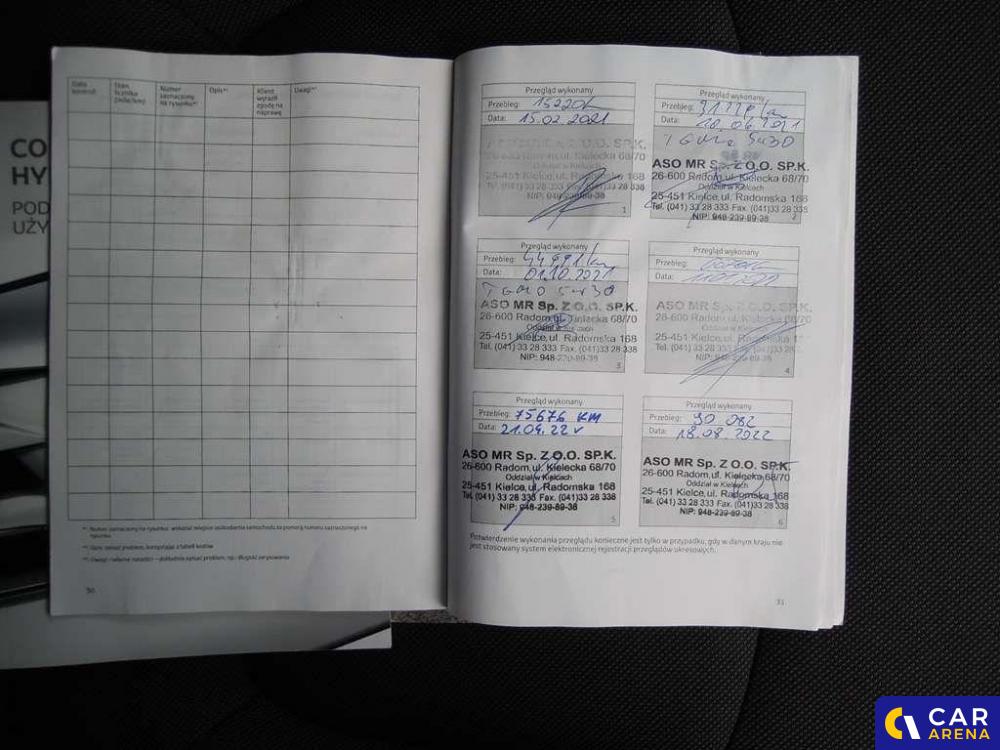 CO
HY
POD
UŻY
Data kontroli
Stan licznika (mile/km)
Numer zaznaczony na rysunku*¹
Opis*²
Klient wyraził zgodę na naprawę
Uwagi*³
*¹ Numer zaznaczony na rysunku: wskazać miejsce uszkodzenia samochodu za pomocą numeru zaznaczonego na
rysunku
50
Przegląd wykonany
Przebieg: 15220
Data: 15.02.2021
ASO MR Sp. Z O.O. SP.K.
26-600 Radom, ul. Kielecka 68/70
Oddział w Kielcach
25-451 Kielce, ul. Radomska 168
Tel. (041) 33 28 333 Fax. (041)33 28 338
NIP: 948-239-89-38
1
Przegląd wykonany
Przebieg:
Data: 18.06.2021
5W30
ASO MR Sp. Z O.O. SP.K.
26-600 Radom, ul. Kielecka 68/70
Oddział w Kielcach
25-451 Kielce, ul. Radomska 168
Tel. (041) 33 28 333 Fax. (041)33 28 338
NIP: 948-239-89-38
2
Przegląd wykonany
Przebieg:
Data: 01.10.2021
5W30
ASO MR Sp. Z O.O. SP.K.
26-600 Radom, ul. Kielecka 68/70
Oddział w Kielcach
25-451 Kielce, ul. Radomska 168
Tel. (041) 33 28 333 Fax. (041)33 28 338
NIP: 948-239-89-38
3
Przegląd wykonany
Przebieg:
Data:
ASO MR Sp. Z O.O. SP.K.
26-600 Radom, ul. Kielecka 68/70
Oddział w Kielcach
25-451 Kielce, ul. Radomska
Tel. (041) 33 28 333 Fax. (041)33 28
NIP: 948-239-89-38
4
Przegląd wykonany
Przebieg: 75676 KM
Data: 21.04.22 r
ASO MR Sp. Z O.O. SP.K.
26-600 Radom, ul. Kielecka 68/70
Oddział w Kielcach
25-451 Kielce, ul. Radomska 168
Tel. (041) 33 28 333 Fax. (041)33 28 338
NIP: 948-239-89-38
5
Przegląd wykonany
Przebieg: 90 082
Data: 18.08.2022
ASO MR Sp. Z O.O. SP.K.
26-600 Radom, ul. Kielecka 68/70
Oddział w Kielcach
25-451 Kielce, ul. Radomska 168
Tel. (041) 33 28 333 Fax. (041)33 28 338
NIP: 948-239-89-38
6
Potwierdzenie wykonania przeglądu konieczne jest tylko w przypadku, gdy w danym kraju nie
jest stosowany system elektronicznej rejestracji przeglądów okresowych.
31
CAR
ARENA